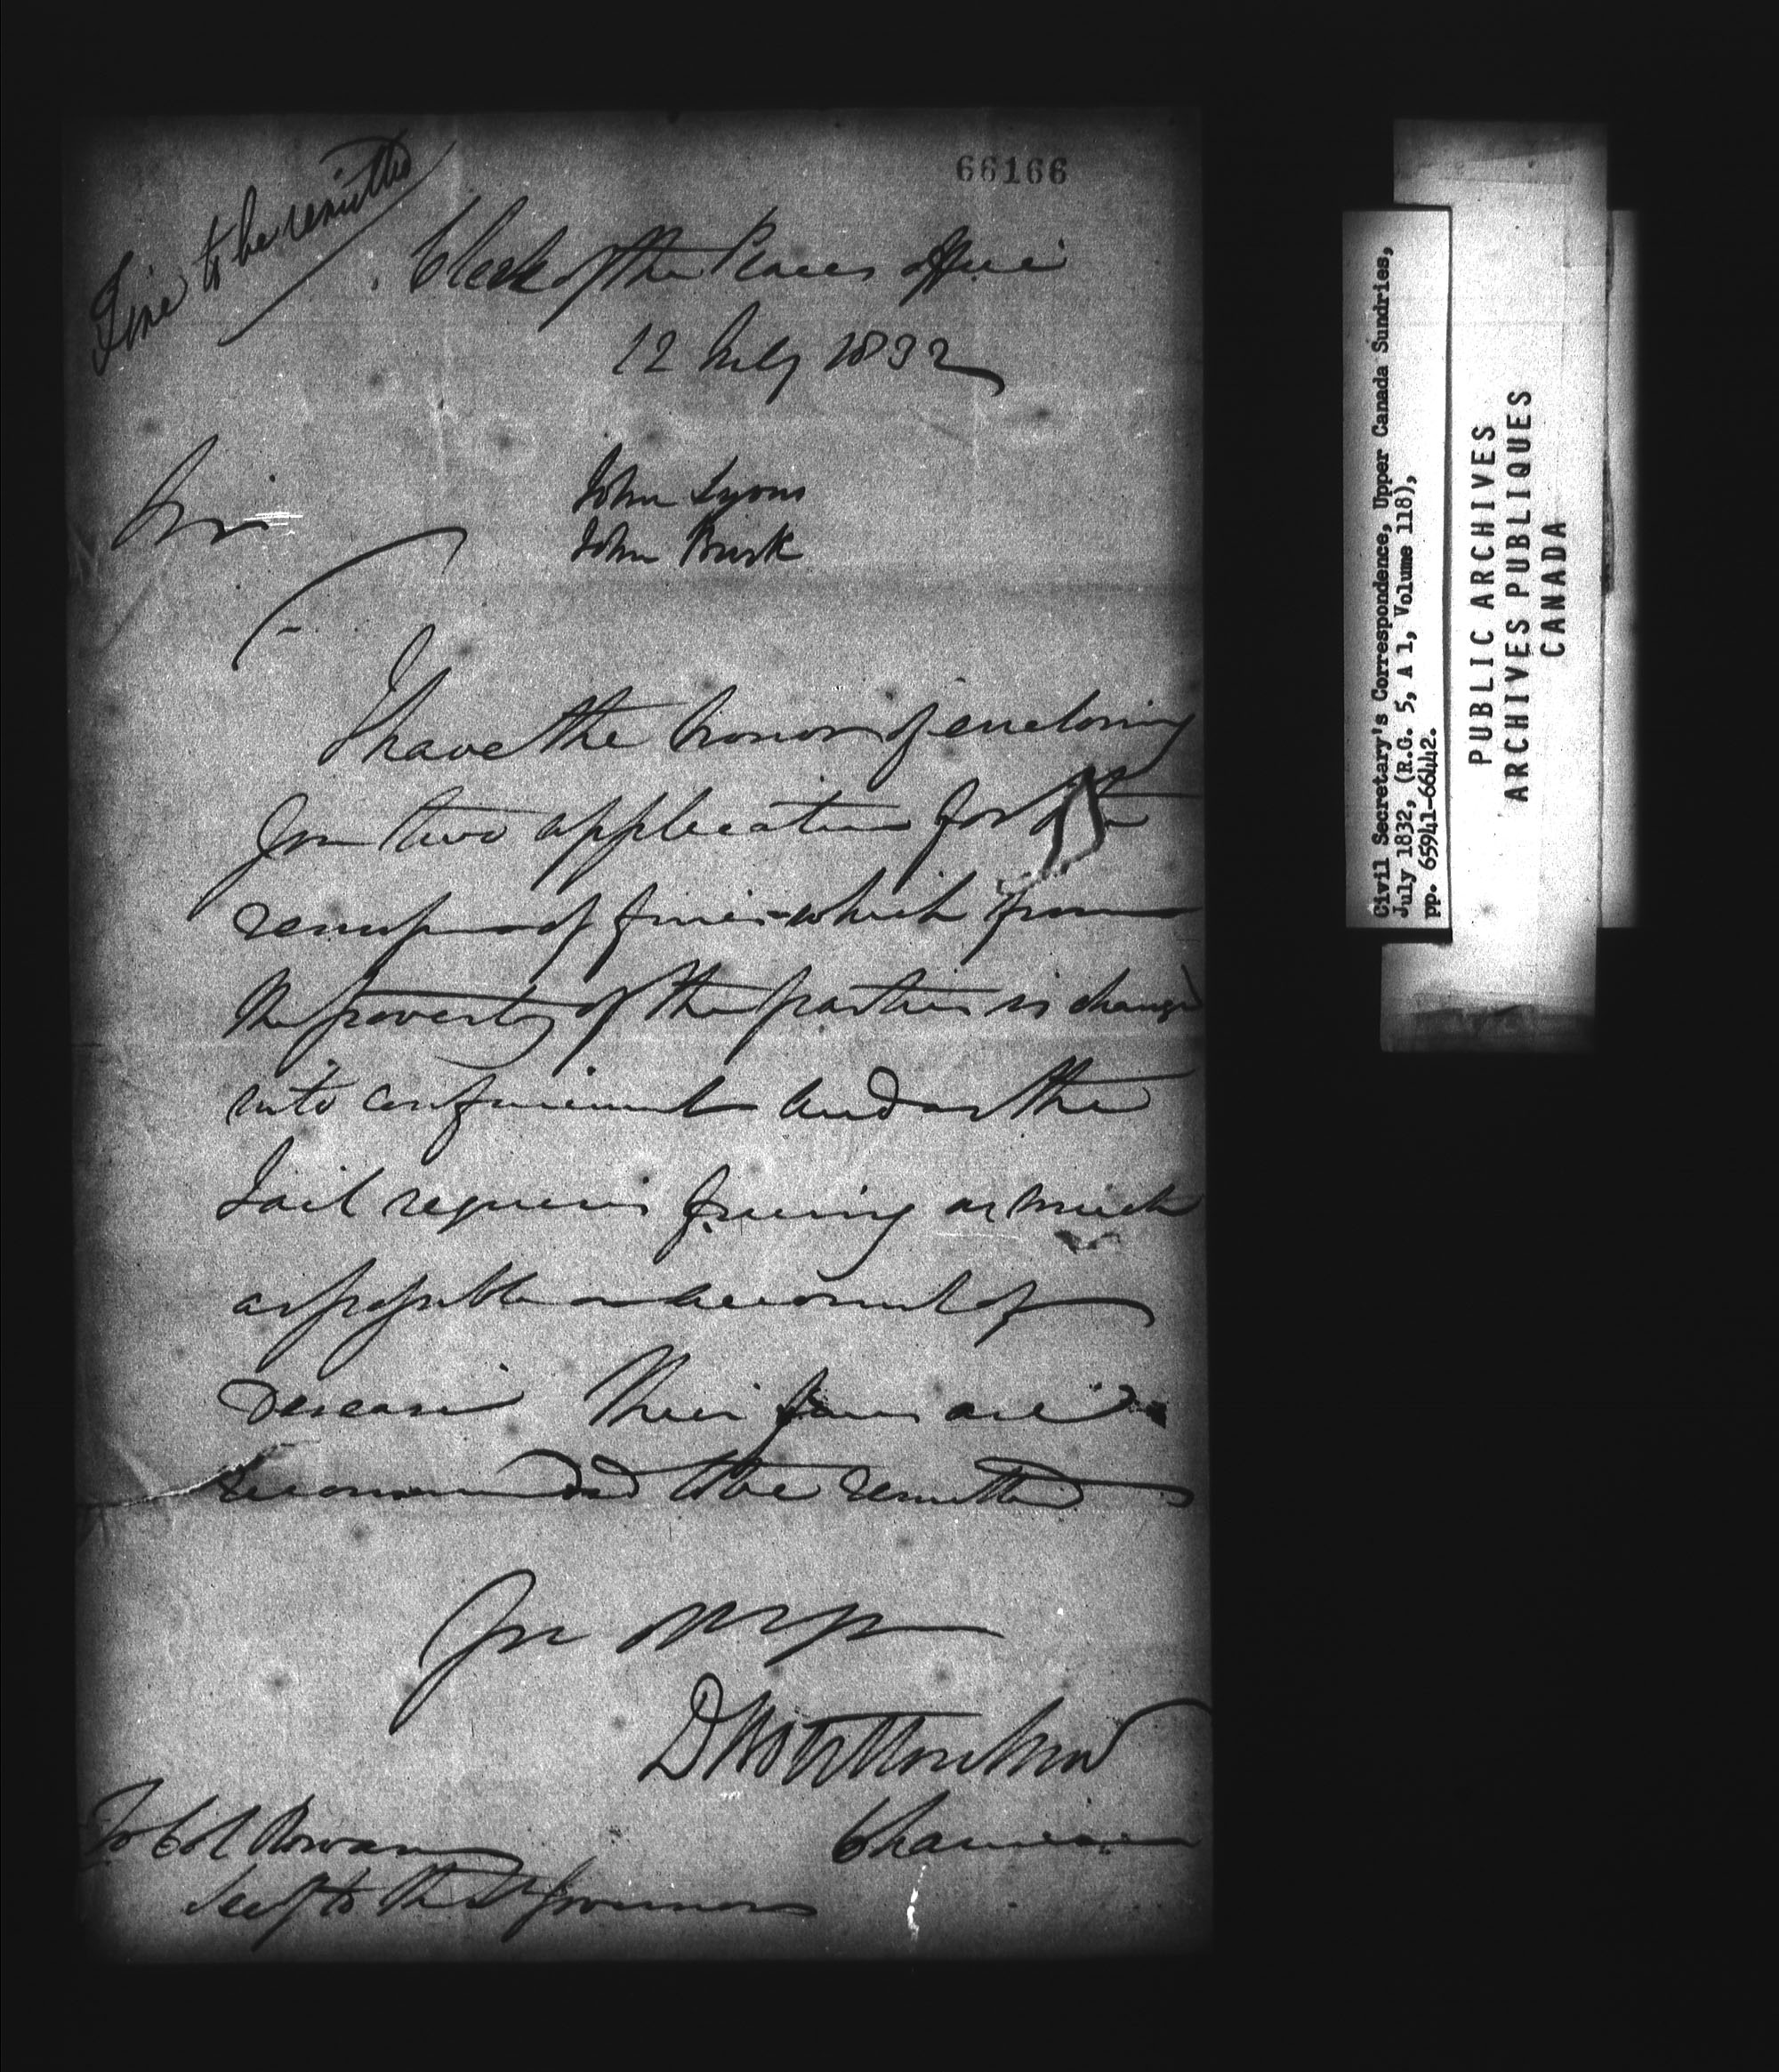 66166
Fine to be remitted
Clerk of the Peaces office
12 July 1832
Sir
John Lyons
John Burk
I have the honor of enclosing
you two applications for the
remission of fines which from
the poverty of the parties is changed
into confinement and as the
Jail requires freeing as much
as possible on account of
Disease Their fines are
recommended to be remitted
You
Chairman
To Col Rowan
Secy to the Lt Governor
Civil Secretary's Correspondence, Upper Canada Sundries,
July 1832, (R.G. 5, A 1, Volume 118),
pp. 65941-66442.
PUBLIC ARCHIVES
ARCHIVES PUBLIQUES
CANADA